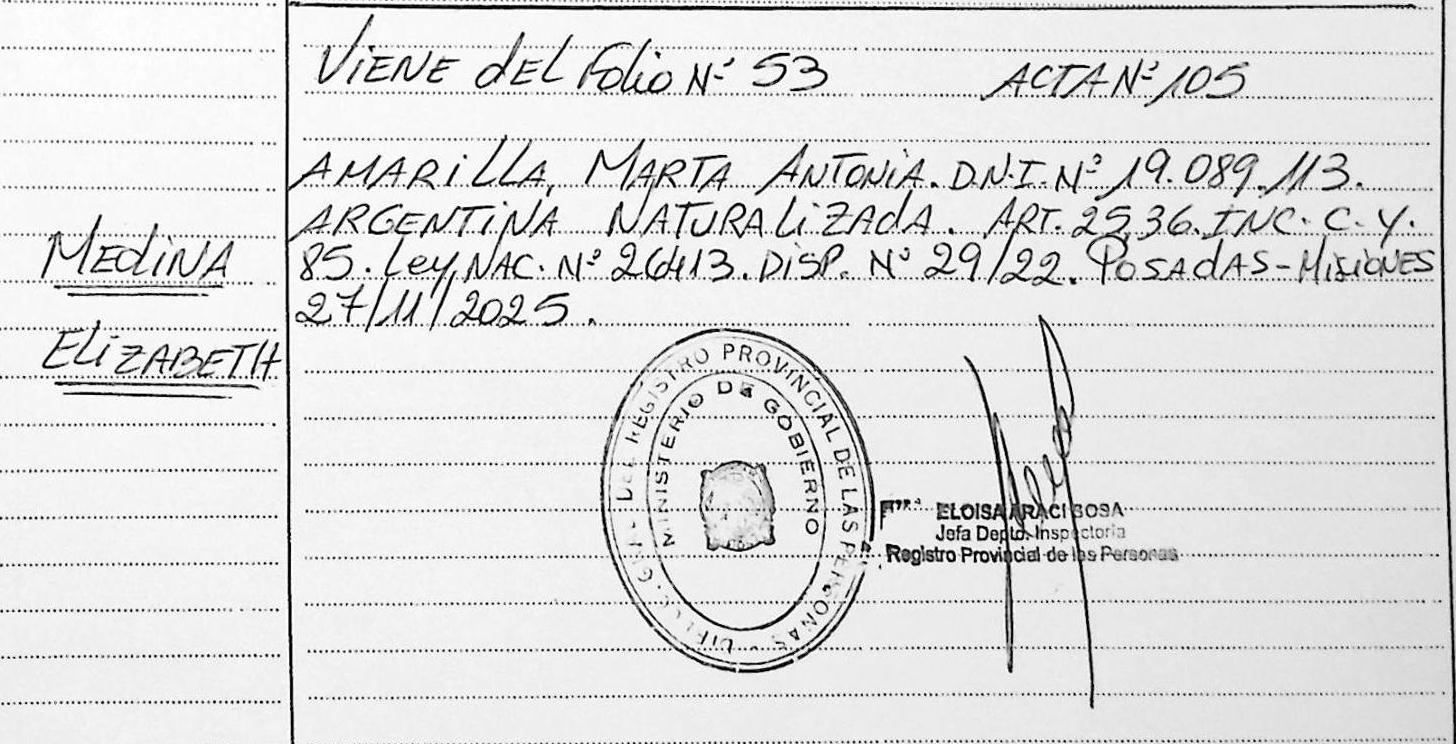 VIENE dEL Folio Nº 53 ACTA Nº 105
AMARILLA, MARTA ANTONIA. D.N.I. Nº 19.089.113.
ARGENTINA NATURALIZADA. ART. 25,36. INC. C. Y.
85. Ley NAC. Nº 26413. DISP. Nº 29/22. POSADAS-MISIONES
27/11/2025.
MEDINA
ELIZABETH
REGISTRO PROVINCIAL DE LAS PERSONAS
MINISTERIO DE GOBIERNO
ELOISA ARACI SOSA
Jefa Depto. Inspectoria
Registro Provincial de las Personas